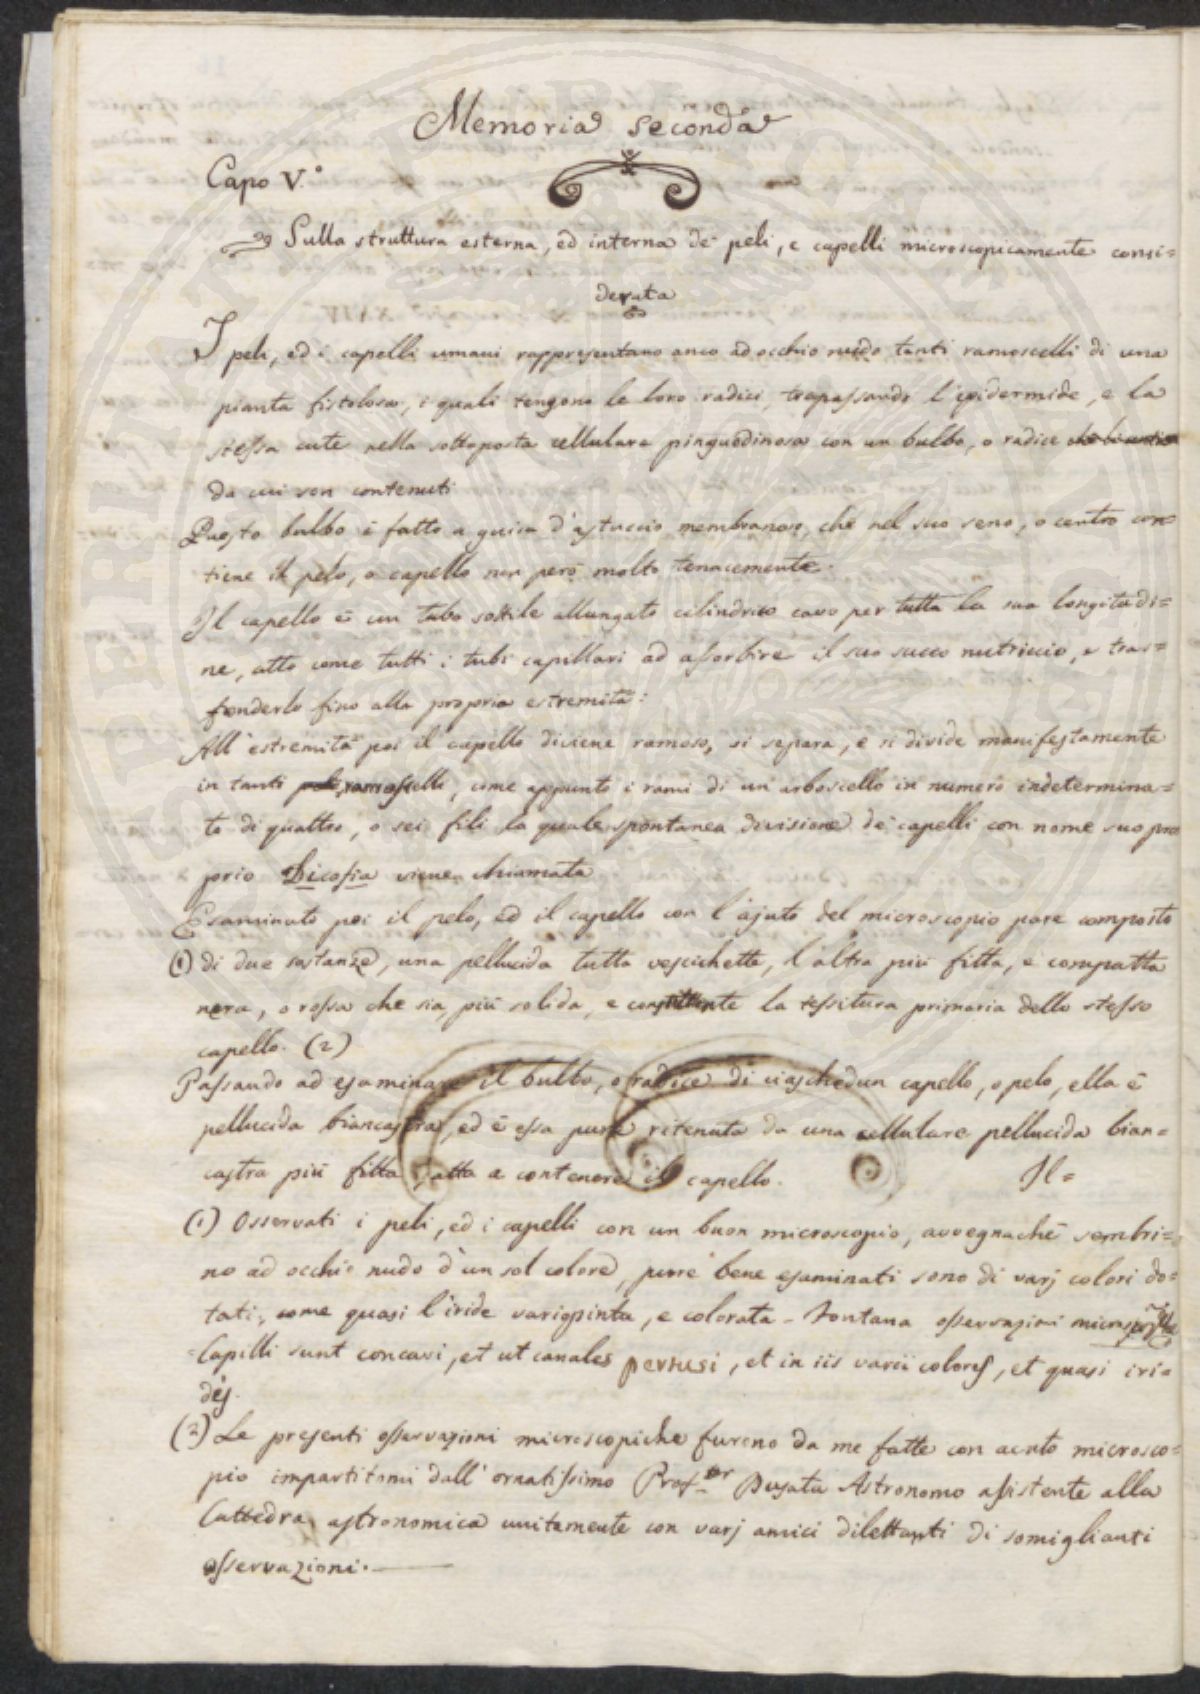 Memoria seconda
Capo V.°
Sulla struttura esterna, ed interna de' peli, e capelli microscopicamente consi=
derata
I peli, ed i capelli umani rappresentano anco ad occhio nudo tanti ramoscelli di una
pianta fistolosa, i quali tengono le loro radici, trapassando l'epidermide, e la
stessa cute nella sottoposta cellulare pinguedinosa con un bulbo, o radice
da cui son contenuti
Questo bulbo è fatto a guisa d'astuccio membranoso, che nel suo seno, o centro con=
tiene il pelo, o capello non però molto tenacemente.
Il capello è un tubo sottile allungato cilindrico cavo per tutta la sua longitudi=
ne, atto come tutti i tubi capillari ad assorbire il suo succo nutriccio, e tras=
fonderlo fino alla propria estremità:
All'estremità poi il capello diviene ramoso, si separa, e si divide manifestamente
in tanti ramoscelli, come appunto i rami di un arboscello in numero indetermina=
to di quattro, o sei fili la quale spontanea divisione de' capelli con nome suo pro
prio Dicosia viene chiamata
Esaminato poi il pelo, ed il capello con l'ajuto del microscopio pare composto
(1) di due sostanze, una pellucida tutta vescichette, l'altra più fitta, e compatta
nera, o rossa che sia, più solida, e constituente la tessitura primaria dello stesso
capello. (2)
Passando ad esaminare il bulbo, o radice di ciaschedun capello, o pelo, ella è
pellucida biancastra, ed è essa pure ritenuta da una cellulare pellucida bian=
castra più fitta, atta a contenere il capello. Il=
(1) Osservati i peli, ed i capelli con un buon microscopio, avvegnachè sembri=
no ad occhio nudo d'un sol colore, purre bene esaminati sono di varj colori do=
tati, come quasi l'iride variopinta, e colorata - Fontana osservazioni
Capilli sunt concavi, et ut canales pertusi, et in iis varii colores, et quasi iri=
des.
(2) Le presenti osservazioni microscopiche furono da me fatte con acuto microsco=
pio impartitomi dall'ornatissimo Prof.or Busata Astronomo assistente alla
Cattedra astronomica unitamente con varj amici dilettanti di somiglianti
osservazioni.